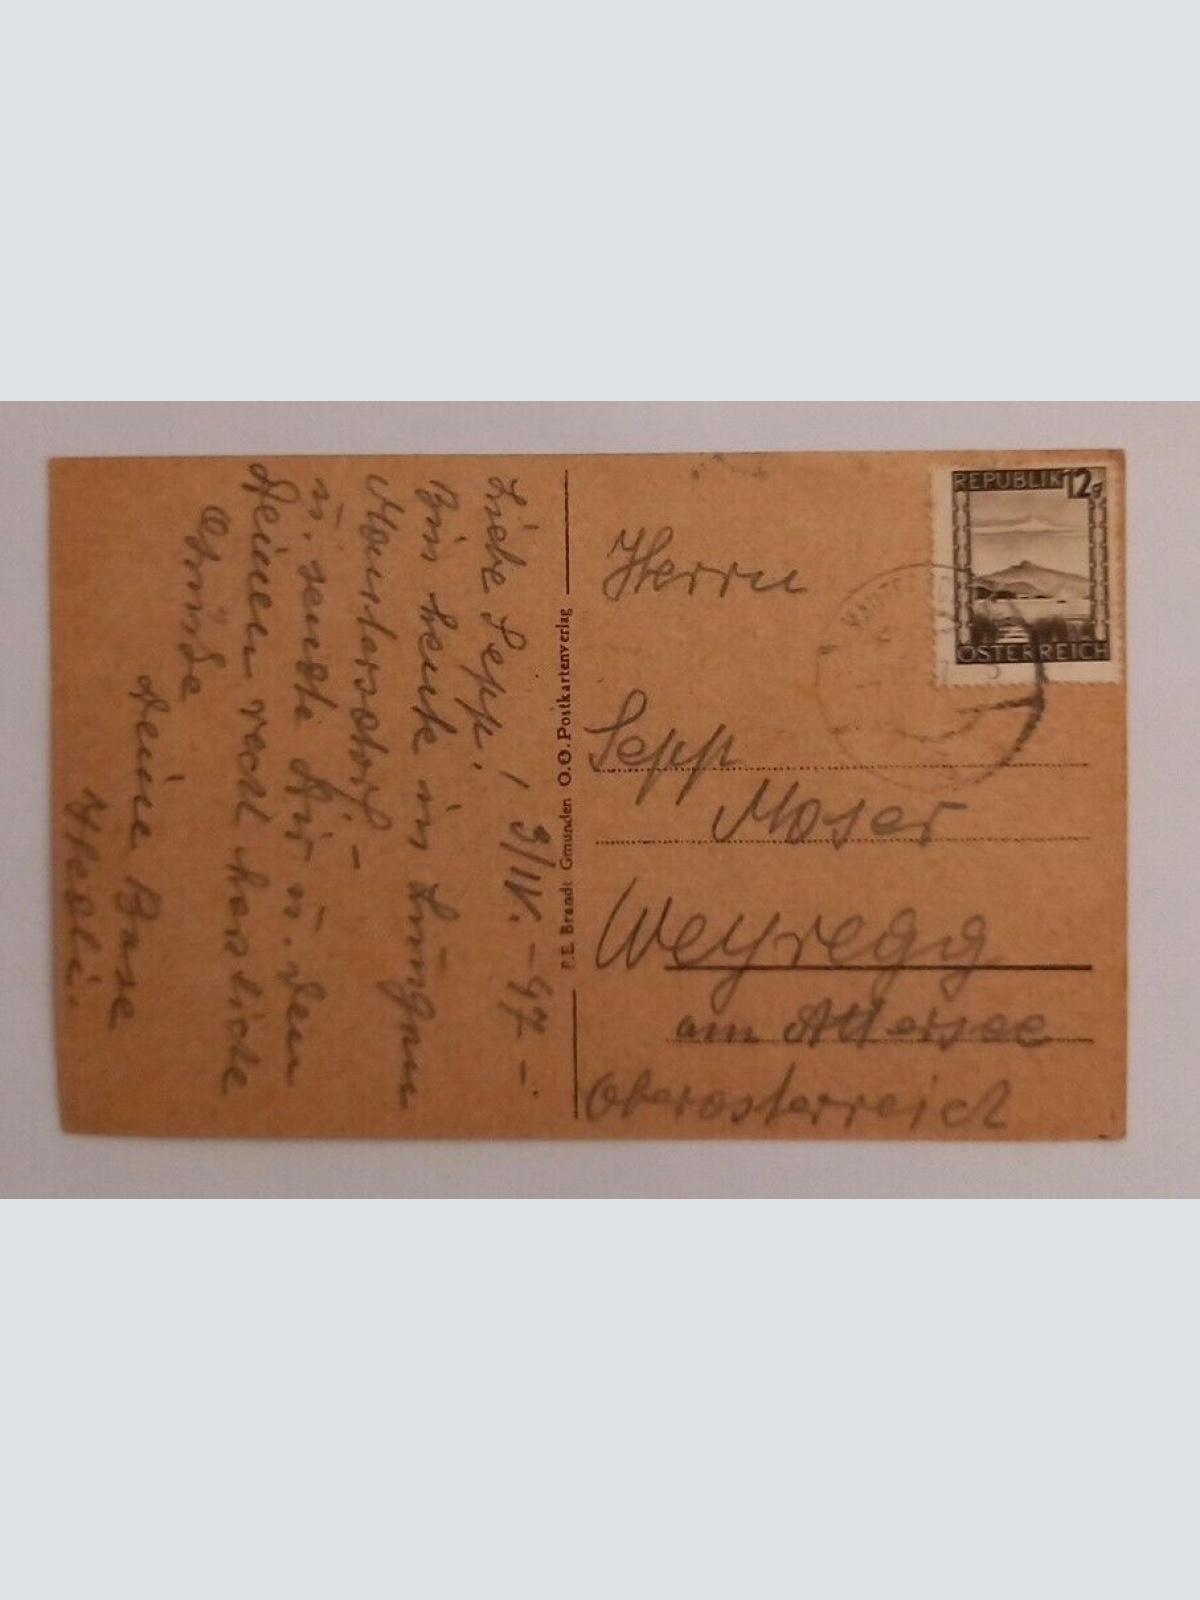 Liebe Sepp!
3/IV. - 47 -
Bin heute im Lungau
Mautersdorf -
u. sende Dir u. den
Deinen recht herzliche
Grüsse
Deine Base
F. E. Brandt Gmunden O.O. Postkartenverlag
REPUBLIK 12g
ÖSTERREICH
Herrn
Sepp
Moser
Weyregg
am Attersee
Oberösterreich